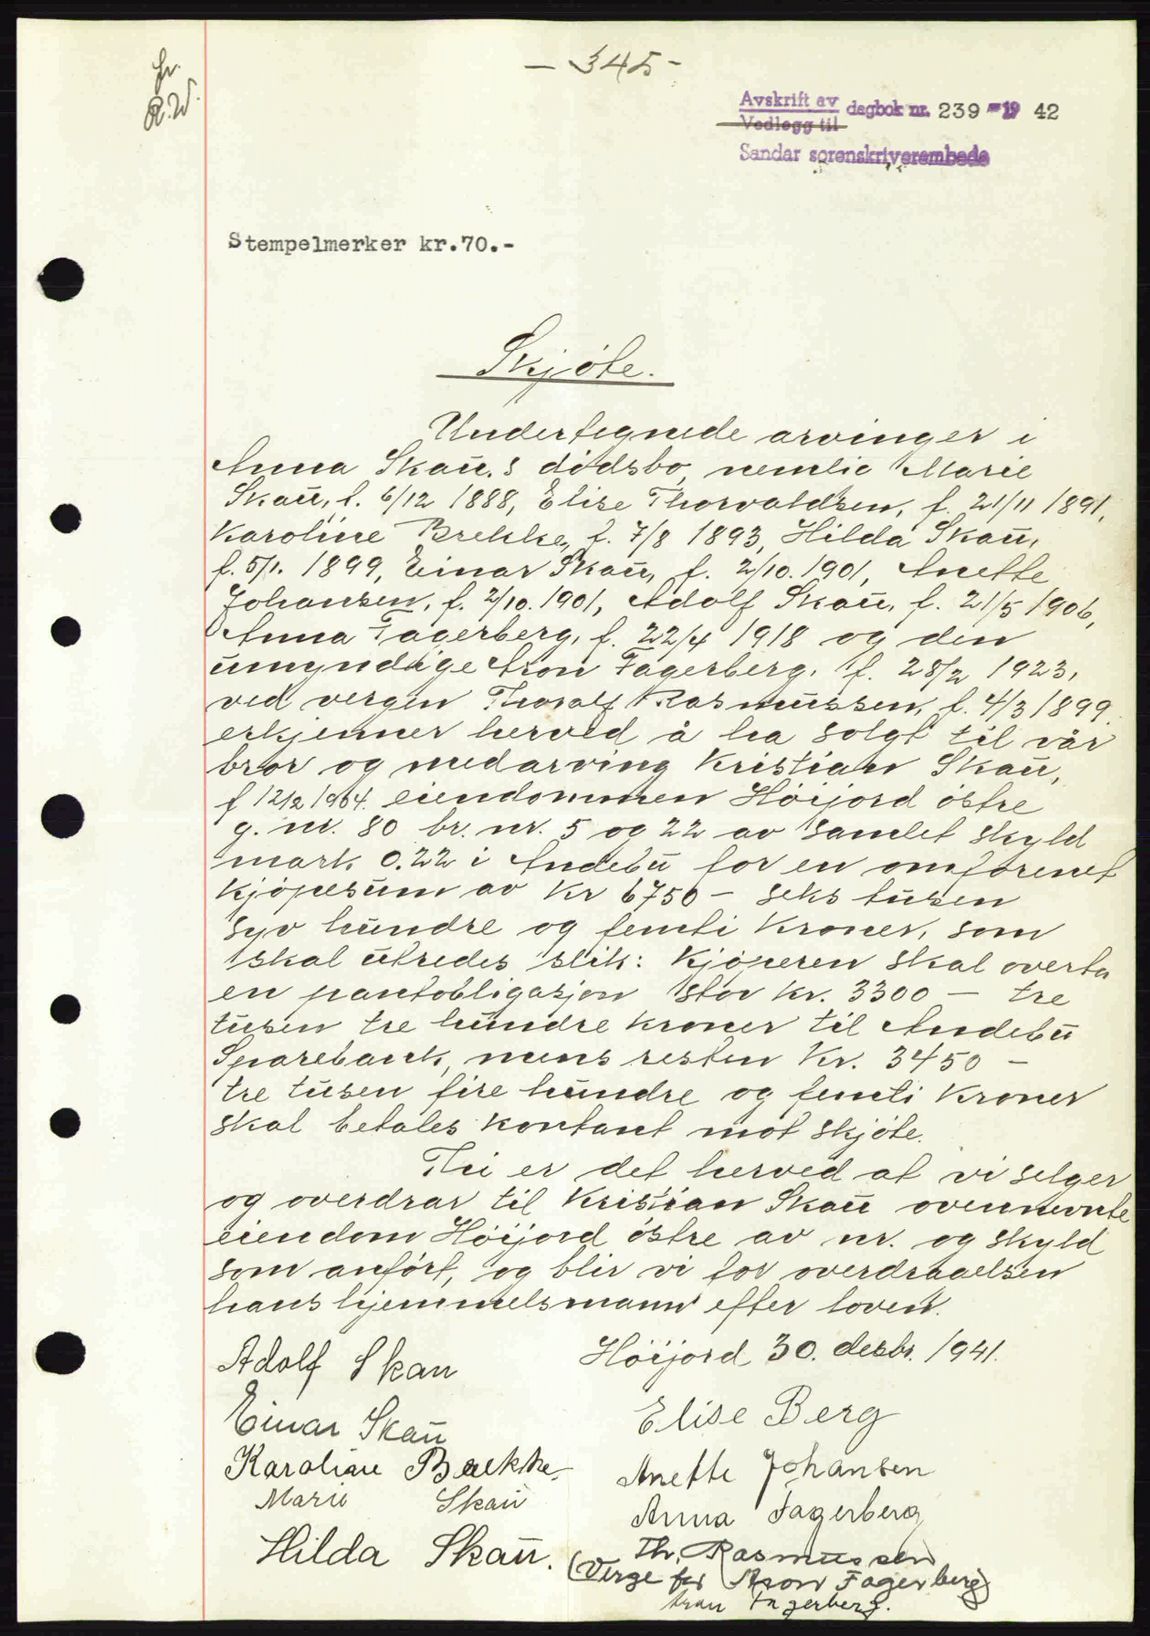 - 345 -
fr.
R.W.
Avskrift av dagbok nr. 239 - 19 42
Vedlegg til
Sandar sorenskriverembede
Stempelmerker kr.70.-
Skjøte.
Undertegnede arvinger i
Anna Skau's dödsbo, nemlig Marie
Skau, f. 6/12 1888, Elise Thorvaldsen, f. 21/11 1891,
Karoline Brekke, f. 7/8 1893, Hilda Skau,
f. 5/1. 1899, Einar Skau, f. 2/10. 1901, Anette
Johansen, f. 2/10. 1901, Adolf Skau, f. 21/5 1906,
Anna Fagerberg, f. 22/4 1918 og den
umyndige Aron Fagerberg, f. 28/2 1923,
ved vergen Thoralf Rasmussen, f. 4/3 1899.
erkjenner herved å ha solgt til vår
bror og medarving Kristian Skau,
f 12/2 1904. eiendommen Höijord östre
g. nr. 80 br. nr. 5 og 22 av samlet skyld
mark 0.22 i Andebu for en omforenet
kjöpesum av Kr 6750 - seks tusen
syv hundre og femti Kroner, som
skal utredes slik: Kjöperen skal overta
en pantobligasjon stor kr. 3300 - tre
tusen tre hundre kroner til Andebu
Sparebank, mens resten Kr. 3450 -
tre tusen fire hundre og femti Kroner
skal betales kontant mot skjöte.
Thi er det herved at vi selger
og overdrar til Kristian Skau ovennevnte
eiendom Höijord östre av nr. og skyld
som anfört, og blir vi for overdraaelsen
hans hjemmelsmann efter loven.
Höijord 30. desbr. 1941.
Adolf Skau
Elise Berg
Einar Skau
Karoline Brekke
Anette Johansen
Marie Skau
Anna Fagerberg
Hilda Skau.
Th. Rasmussen
(Verge for Aron Fagerberg)
Aron Fagerberg.